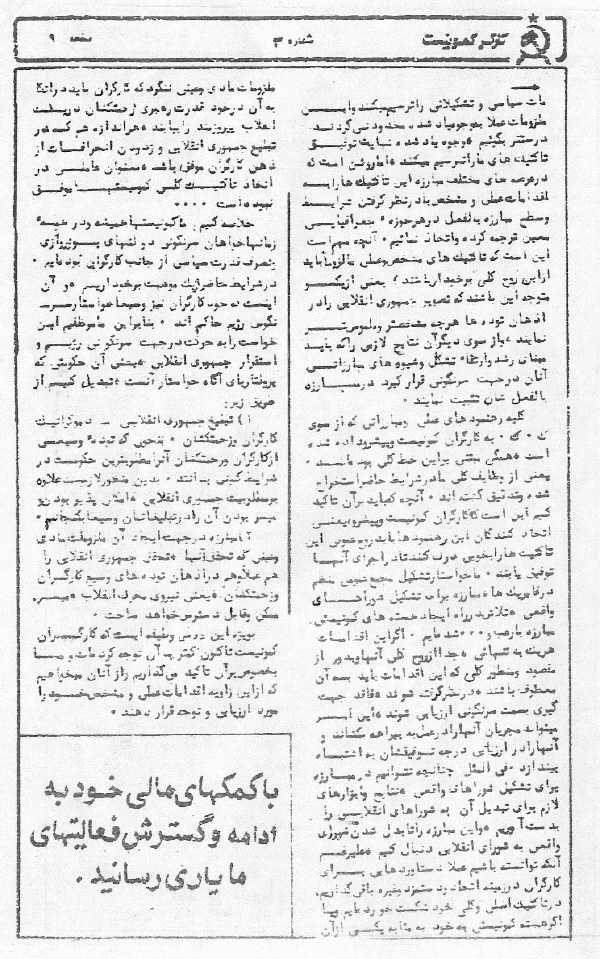 کارگر کمونیست
شماره ۳
صفحه ۹
مات سیاسی و تشکیلاتی را ترسیم میکند و این
ملزومات عملا بوجود یاد شده محدود نمی گردند.
درستتر بگوئیم وجوه یاد شده نهایت توفیق
تاکتیک های ما را ترسیم میکند. اما روشن است که
در عرصه های مختلف مبارزه این تاکتیک ها را به
اقدامات عملی و مشخص با در نظر گرفتن شرایط
و سطح مبارزه بالفعل در هر حوزه جغرافیایی
معین ترجمه کرده و اتخاذ نمائیم. آنچه مهم است
این است که تاکتیک های مشخص و عملی ما لزوما باید
از این روح کلی برخوردار باشند، یعنی از یکسو
متوجه این باشند که تصویر جمهوری انقلابی را در
اذهان توده ها هرچه مشخصتر و ملموس تر
نمایند، و از سوی دیگر آن نتایج لازمی را که باید
مبنای رشد و ارتقاء تشکل و شیوه های مبارزاتی
آنان در جهت سرنگونی قرار گیرد در مبارزه
بالفعل شان تثبیت نمایند.
کلیه رهنمود های عملی و مبارزاتی که از سوی
ک. ک. به کارگران کمونیست و پیشرو داده شده
است همگی مبتنی بر این خط کلی بوده است.
یعنی از وظایف کلی ما در شرایط حاضر استخراج
شده و تدقیق گشته اند. آنچه که باید بر آن تاکید
کنیم این است که کارگران کمونیست و پیشرو یعنی
اتخاذ کنندگان این رهنمود ها باید روح عمومی این
تاکتیک ها را بخوبی درک کنند تا در اجرای آنها
توفیق یابند. ما خواستار تشکیل مجمع عمومی منظم
در فابریک ها، مبارزه برای تشکیل شوراهای
واقعی، تلاش در راه ایجاد هسته های کمونیستی،
مبارزه با رعب و ... شده ایم. اگر این اقدامات
هریک به تنهائی، جدا از روح کلی آنها و بدور از
مقصود و منظور کلی که این اقدامات باید به آن
معطوف باشند، در نظر گرفته شوند، فاقد جهت
گیری بسمت سرنگونی ارزیابی شوند، این امر
میتواند مجریان آنها را در عمل به بیراهه بکشاند و
آنها را در ارزیابی درجه توفیقشان به اشتباه
بیندازد. فی المثل چنانچه نتوانیم در مبارزه
برای تشکیل شوراهای واقعی، نتایج و ابزارهای
لازم برای تبدیل آن به شوراهای انقلابی را
بدست آوریم، و این مبارزه را تا بدل شدن شورای
واقعی به شورای انقلابی دنبال کنیم، علیرغم
آنکه توانسته باشیم عملا دستاوردهایی برای
کارگران در زمینه اتحاد و دستمزد و غیره باقی گذاریم،
در تاکتیک اصلی و کلی خود شکست خورده ایم و یا
اگر هسته کمونیستی به خود به مثابه یکی از آن
ملزومات مادی و عینی ننگرد که کارگران باید در اتکا
به آن در خود قدرت رهبری زحمتکشان در یک
انقلاب پیروزمند را بیابند، هر اندازه هم که در
تبلیغ جمهوری انقلابی و زدودن انحرافات از
ذهن کارگران موفق باشد، بعنوان عاملی در
اتخاذ تاکتیک کلی کمونیستها موفق
نبوده است ....
خلاصه کنیم: ما کمونیستها همیشه و در همه
زمانها خواهان سرنگونی دولتهای بورژوازی
و تصرف قدرت سیاسی از جانب کارگران بوده ایم.
در شرایط حاضر از یک موهبت برخورداریم، و آن
اینست که خود کارگران نیز وسیعا خواستار سر-
نگونی رژیم حاکم اند. بنابراین ما موظفیم این
خواست را به حرکت در جهت سرنگونی رژیم و
استقرار جمهوری انقلابی، یعنی آن حکومتی که
پرولتاریای آگاه خواستار آنست، تبدیل کنیم از
طریق زیر:
۱) تبلیغ جمهوری انقلابی - دموکراتیک
کارگران و زحمتکشان. بنحوی که توده وسیعی
از کارگران و زحمتکشان آنرا مطلوبترین حکومت در
شرایط کنونی بدانند. بدین منظور لازمست علاوه
بر مطلوبیت جمهوری انقلابی، امکان پذیر بودن و
میسر بودن آن را در تبلیغاتمان وسیعا بگنجانیم.
۲) مبارزه در جهت ایجاد آن ملزومات مادی
و عینی که تحقق آنها، تحقق جمهوری انقلابی را
هم عملا، هم در اذهان توده های وسیع کارگران
و زحمتکشان، یعنی نیروی محرک انقلاب، میسر،
ممکن و قابل دسترس خواهد ساخت.
بویژه این دومی وظیفه ایست که کارگران
کمونیست تاکنون کمتر به آن توجه کرده اند و ما
بخصوص بر آن تاکید می گذاریم و از آنان میخواهیم
که از این زاویه اقدامات عملی و مشخص خود را
مورد ارزیابی و توجه قرار دهند.
با کمکهای مالی خود به
ادامه و گسترش فعالیتهای
ما یاری رسانید.